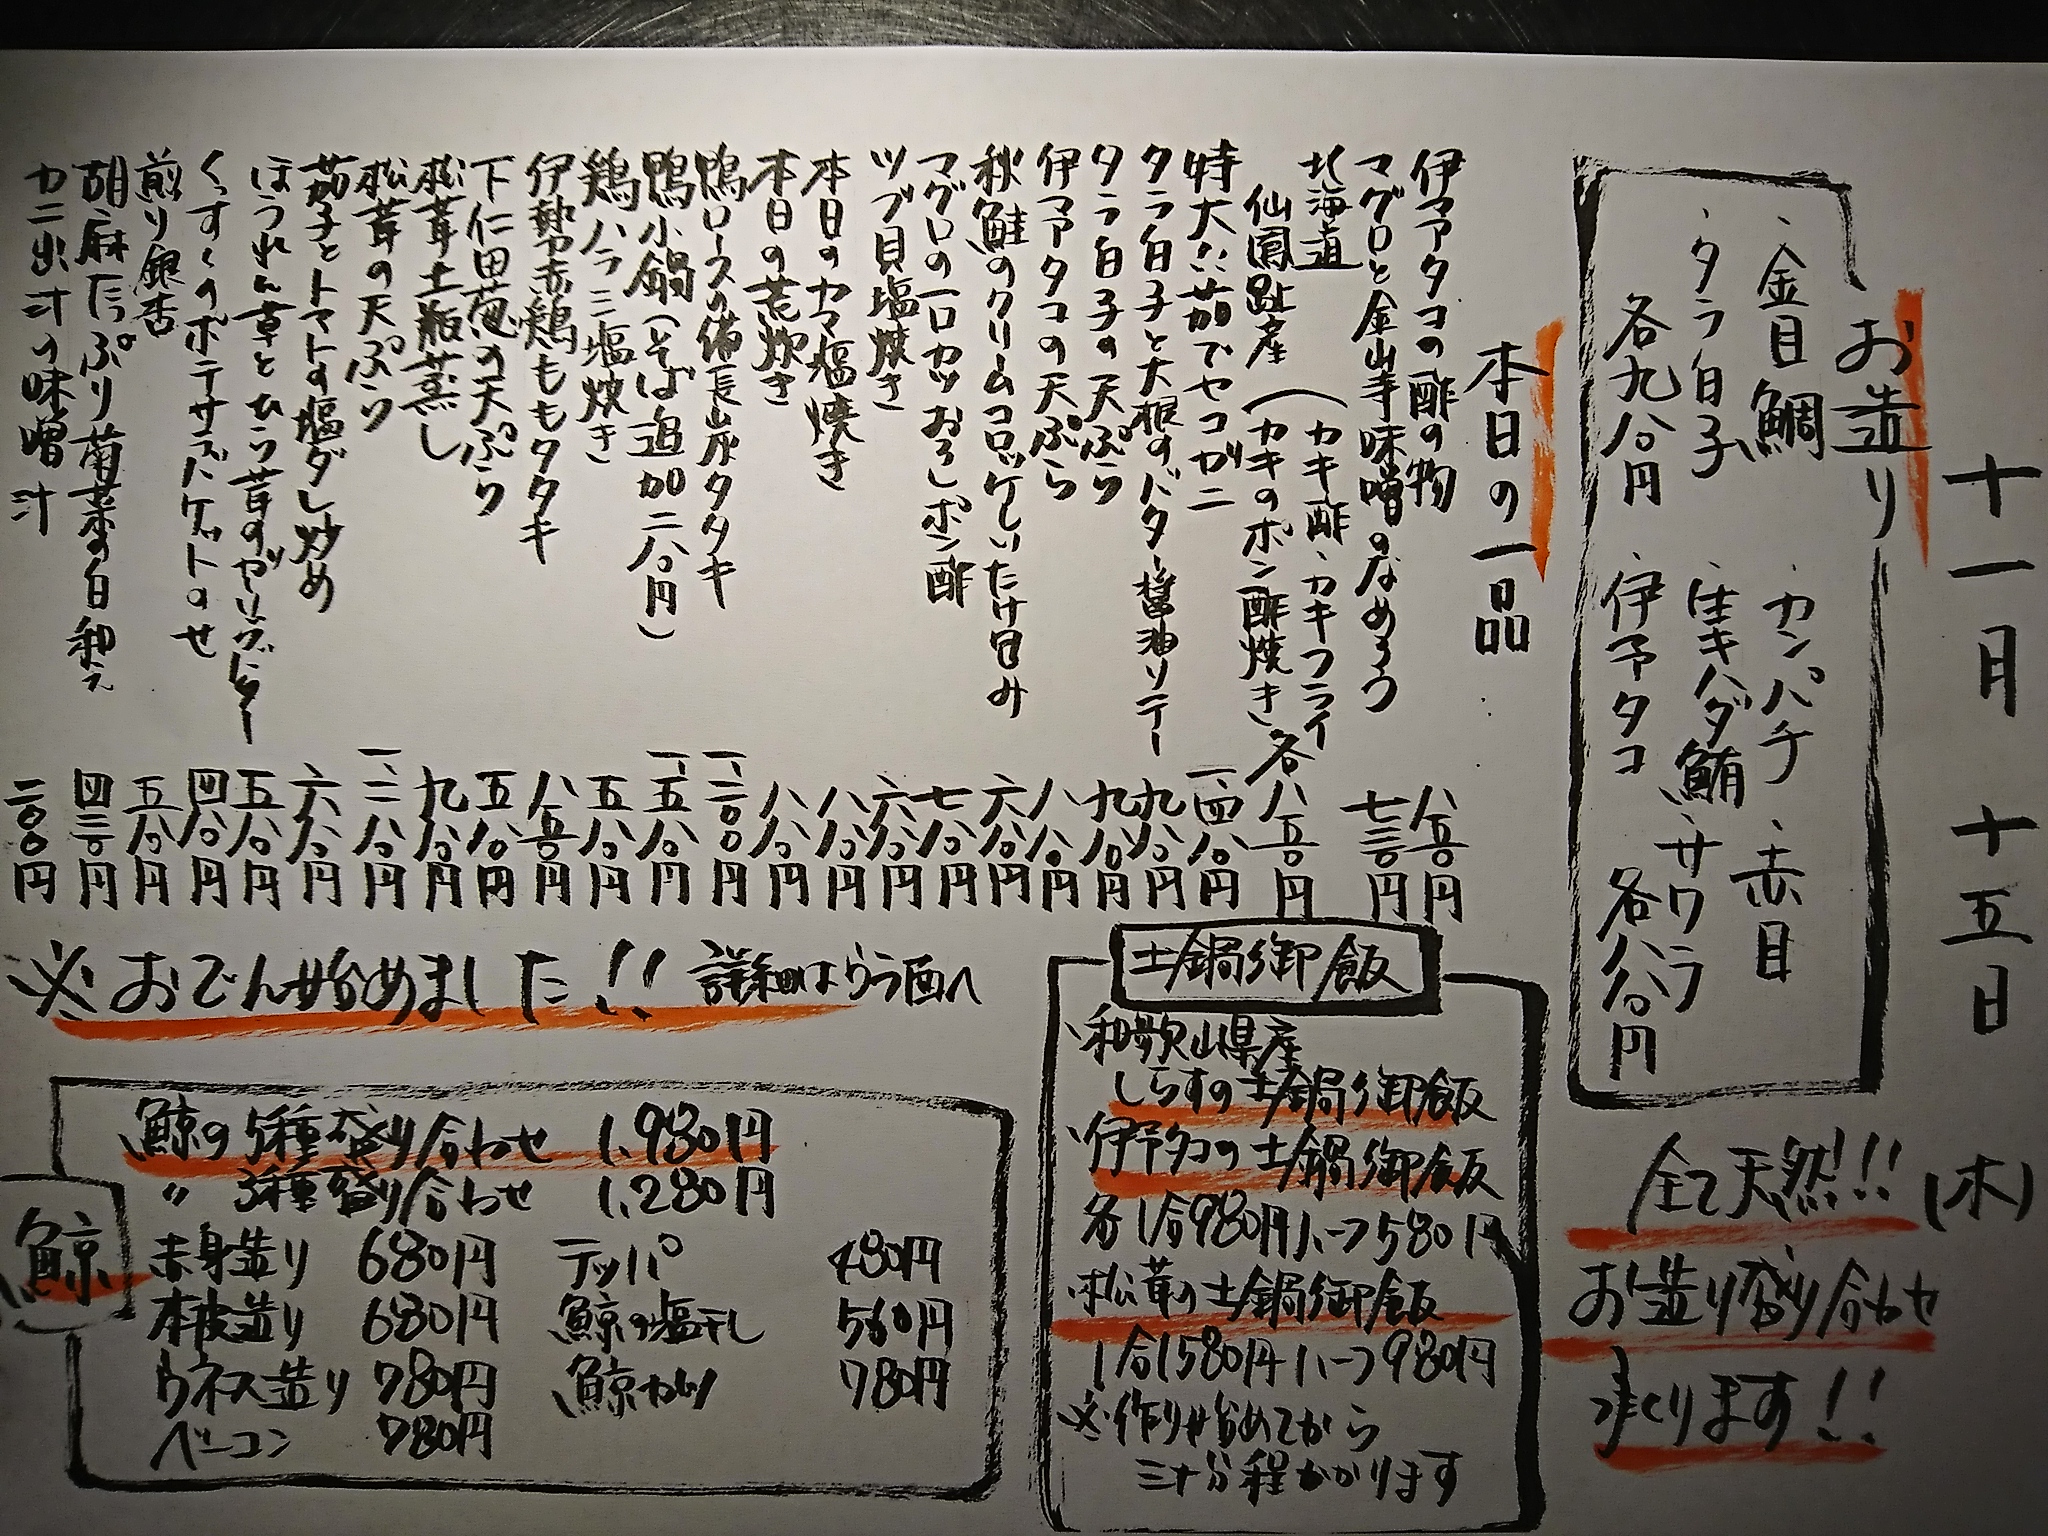 十一月 十五日 (木)
お造り
・金目鯛
・タラ白子
各九八〇円
・カンパチ ・赤目
・生キハダ鮪 ・サワラ
・伊予タコ 各八八〇円
全て天然!!
お造り盛り合わせ
承ります!!
本日の一品
伊予タコの酢の物 八五〇円
マグロと金山寺味噌のなめろう 七三〇円
北海道 (カキ酢・カキフライ
仙鳳趾産 (カキのポン酢焼き 各八五〇円
特大 茹でヤコガニ 一、四八〇円
タラ白子と大根のバター醤油ソテー 九八〇円
タラ白子の天ぷら 九八〇円
伊予タコの天ぷら 八八〇円
秋鮭のクリームコロッケしいたけ包み 六八〇円
マグロの一口カツおろしポン酢 七八〇円
ツブ貝塩焼き 六八〇円
本日のカマ塩焼き 八八〇円
本日の荒炊き 八八〇円
鴨ロースの備長山灰タタキ 一、二〇〇円
鴨小鍋(そば追加二八〇円) 一、五八〇円
鶏ハラミ塩焼き 五八〇円
伊勢赤鶏ももタタキ 八五〇円
下仁田葱の天ぷら 五八〇円
松茸土瓶蒸し 九八〇円
松茸の天ぷら 一、二八〇円
茄子とトマトの塩ダレ炒め 六八〇円
ほうれん草とひら茸のガーリックバター 五八〇円
くずくのポテサラバケットのせ 四八〇円
煎り銀杏 五八〇円
胡麻たっぷり菊菜の白和え 四三〇円
カニ出汁の味噌汁 二〇〇円
土鍋御飯
・和歌山県産
しらすの土鍋御飯
・伊予タコの土鍋御飯
各1合980円ハーフ580円
・松茸の土鍋御飯
1合1580円ハーフ980円
※作り始めてから
三十分程かかります
※おでん始めました!! 詳細はうら面へ
鯨
鯨の5種盛り合わせ 1,980円
〃 3種盛り合わせ 1,280円
赤身造り 680円 テッパ 480円
本皮造り 680円 鯨の塩干し 560円
ウネス造り 780円 鯨カツ 780円
ベーコン 780円